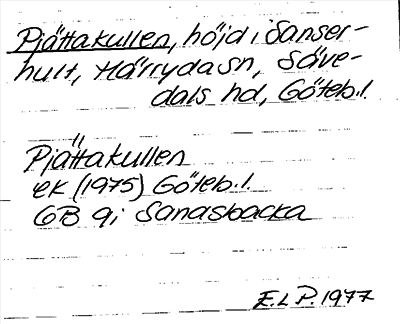 Pjättakullen, höjd i Sanser-
hult, Härryda sn, Säve-
dals hd, Göteb.l.
Pjättakullen
ek (1975) Göteb.l.
6B 9i Sandsbacka
E.L.P. 1977